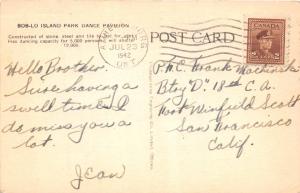 BOB-LO ISLAND PARK DANCE PAVILION
Constructed of stone steel and tile
free dancing capacity for 5,000 persons, will shelter
12,000.
POST CARD
JUL 23
1942
ONT
Hello Brother,
Sure having a
swell time. I
do miss you a
lot.
Jean
Pvt. Frank
Bty "D" 18th C.A.
Fort Winfield Scott
San Francisco
Calif.
2